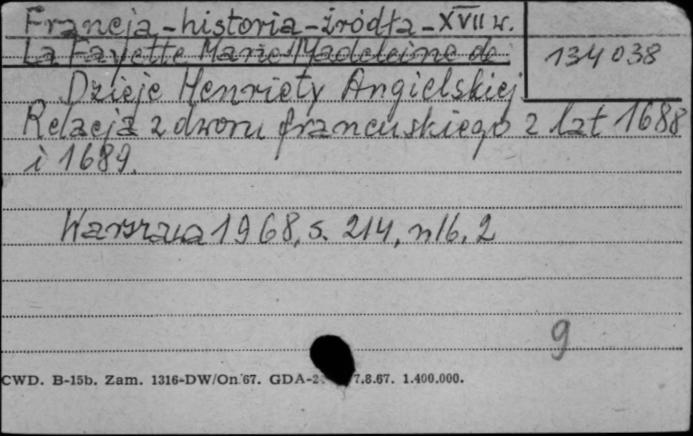 Francja - historia - źródła - XVII w.
La Fayette Marie Madeleine de
134 038
Dzieje Henriety Angielskiej
Relacja z dworu francuskiego z lat 1688
i 1689.
Warszawa 1968, s. 214, nlb. 2
9
CWD. B-15b. Zam. 1316-DW/On/67. GDA-2 7.8.67. 1.400.000.